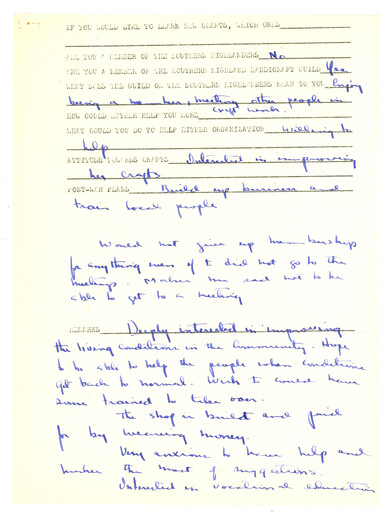 IF YOU WOULD LIKE TO LEARN NEW CRAFTS, WHICH ONES
ARE YOU A MEMBER OF THE SOUTHERN HIGHLANDERS No
ARE YOU A MEMBER OF THE SOUTHERN HIGHLAND HANDICRAFT GUILD Yes
WHAT DOES THE GUILD OR THE SOUTHERN HIGHLANDERS MEAN TO YOU Enjoy
being a member, meeting other people in
craft work.
HOW COULD EITHER HELP YOU MORE
WHAT COULD YOU DO TO HELP EITHER ORGANIZATION Willing to
help
ATTITUDE TOWARDS CRAFTS Interested in improving
her crafts
POST-WAR PLANS Build up business and
train local people
Would not give up membership
for anything even if I did not go to the
meetings. Makes me sad not to be
able to get to a meeting
REMARKS Deeply interested in improving
the living conditions in the Community. Hope
to be able to help the people when conditions
get back to normal. Wish I could have
some trained to take over.
The shop is built and paid
for by weaving money.
Very anxious to have help and
makes the most of suggestions.
Interested in vocational education